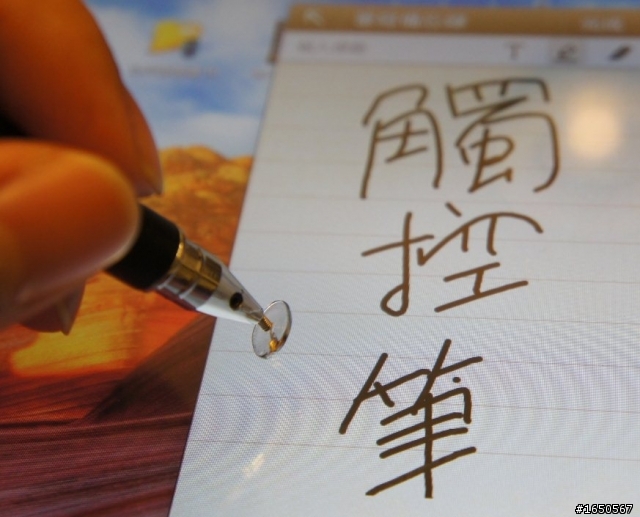 觸
控
筆
#1650567